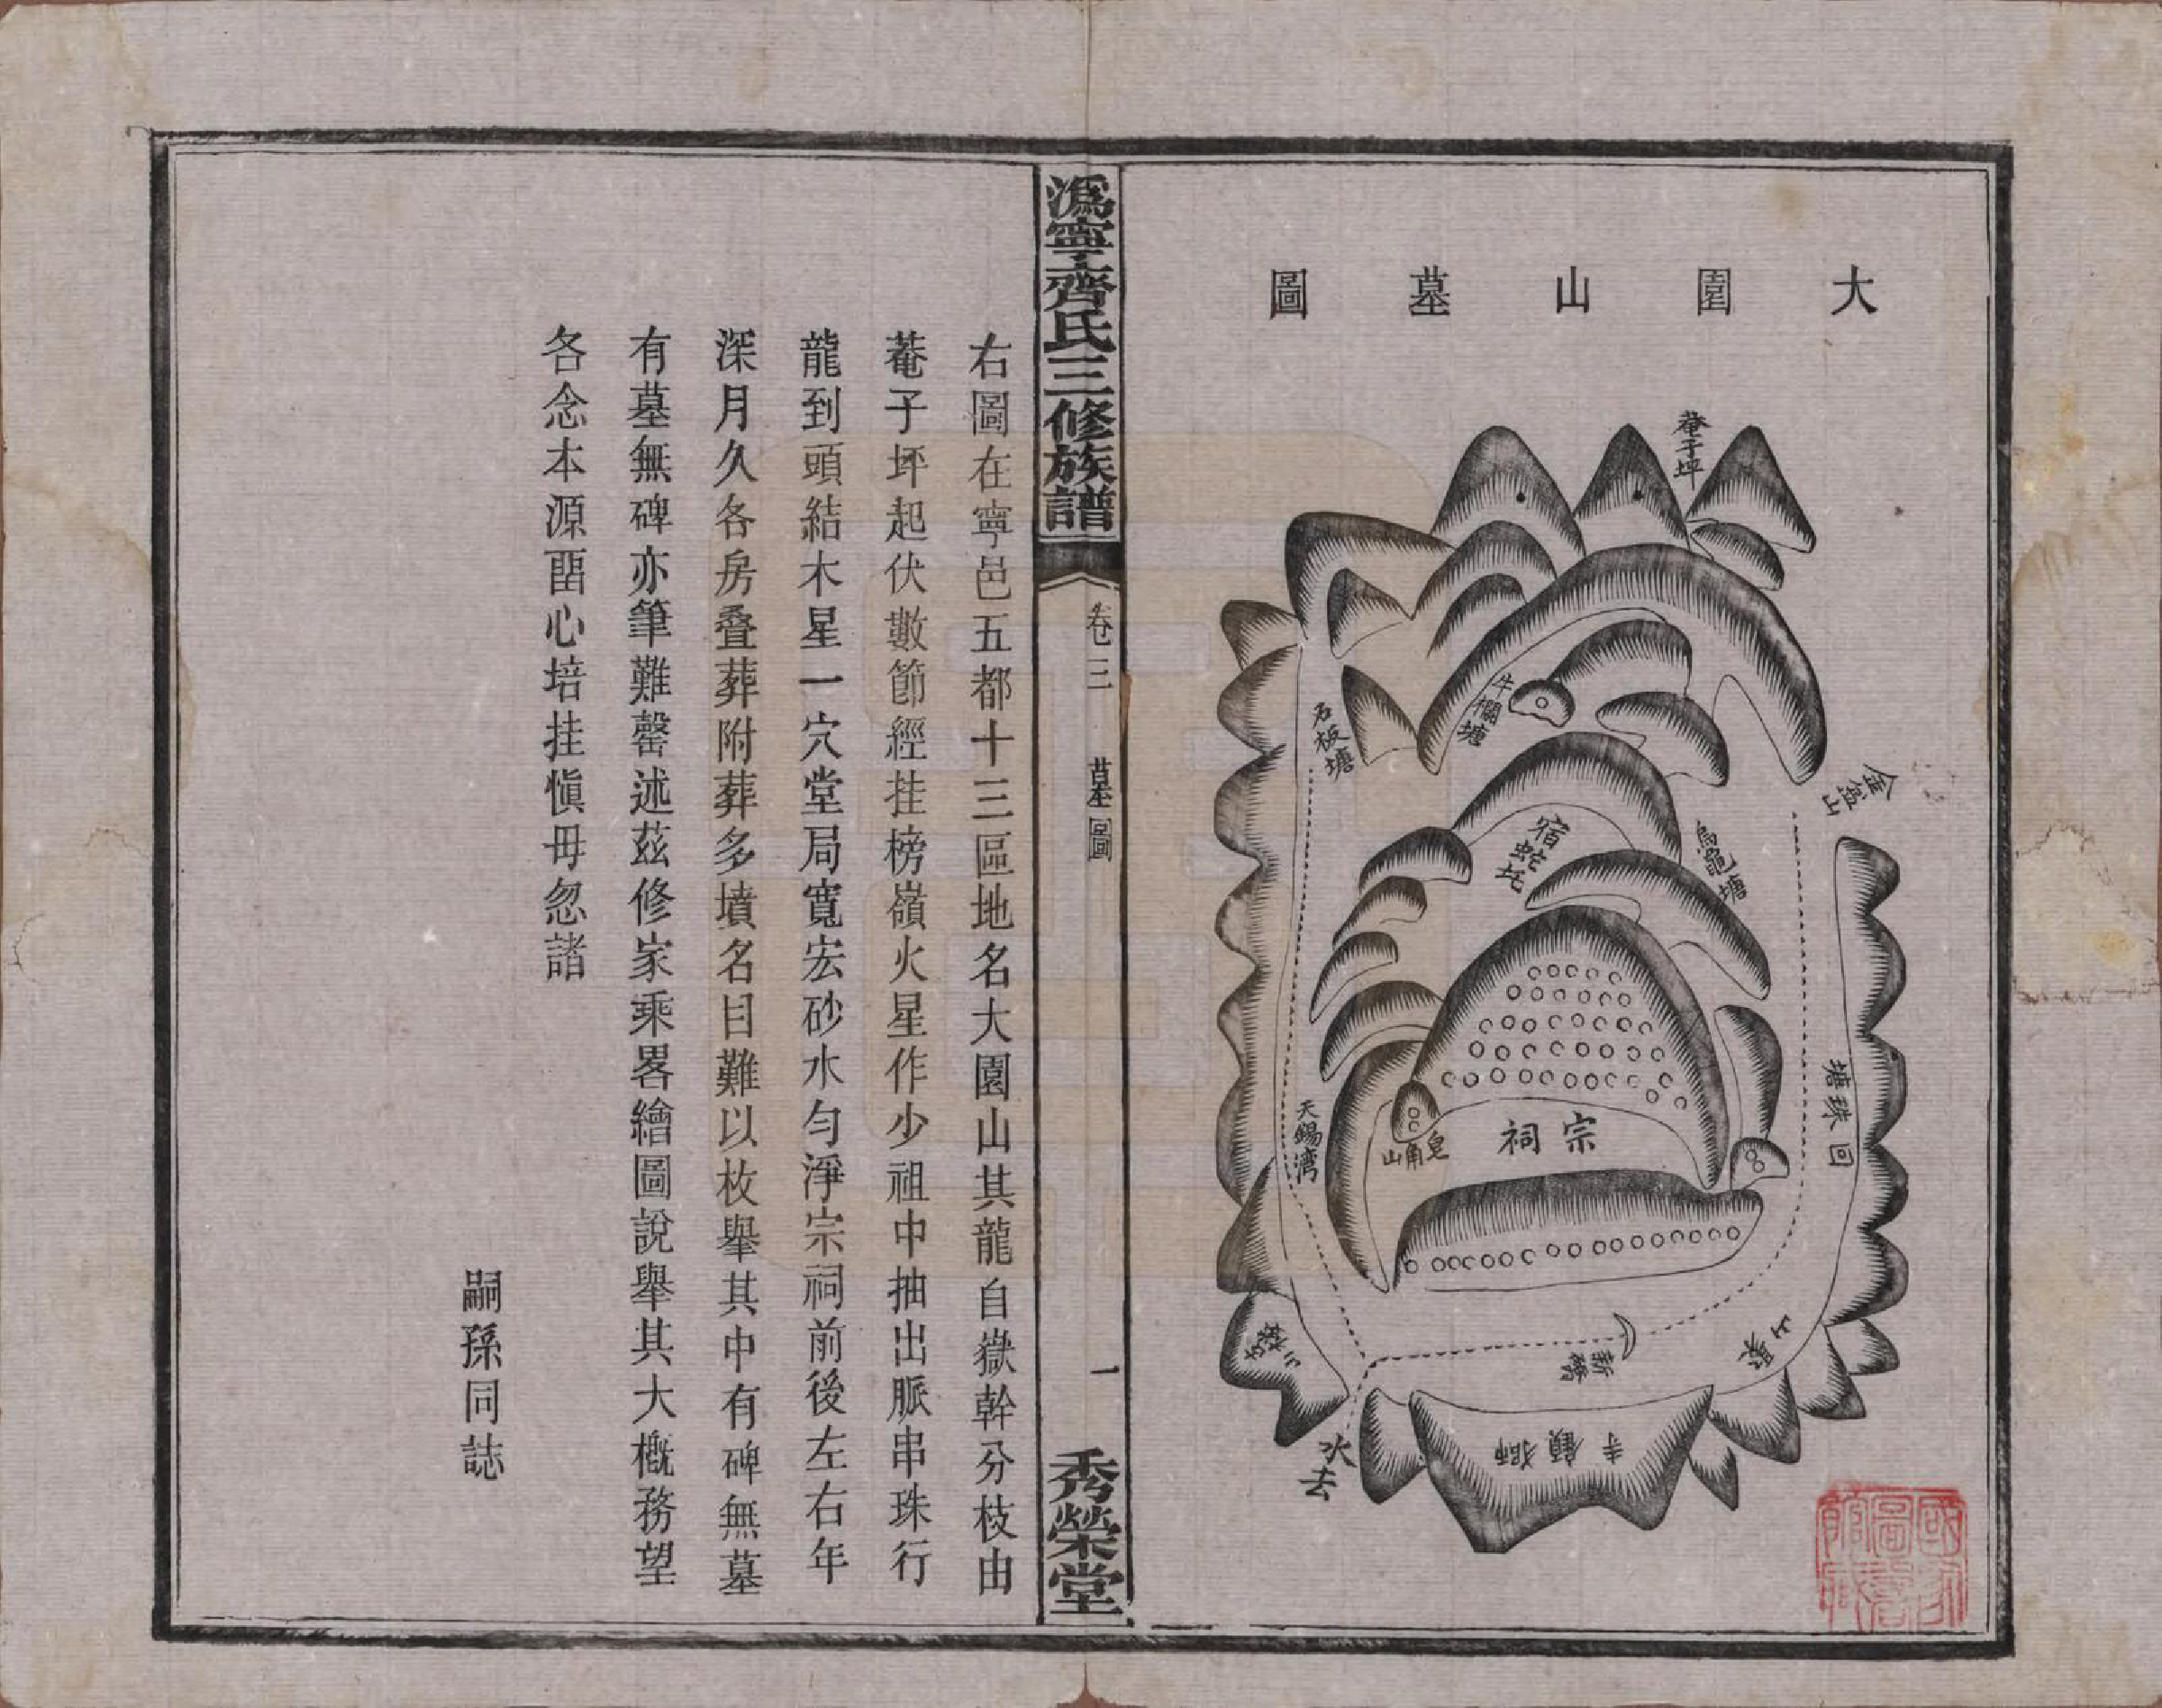 大園山墓圖
菴子坪
牛欄塘
石板塘
金盤山
宿蛇坨
烏龜塘
塘珠回
天錫湾
皂角山
宗祠
新橋
獅顧寺
水去
溈寧齊氏三修族譜
卷三
墓圖
一
秀榮堂
右圖在寧邑五都十三區地名大園山其龍自嶽幹分枝由
菴子坪起伏數節經挂榜嶺火星作少祖中抽出脈串珠行
龍到頭結木星一穴堂局寬宏砂水匀淨宗祠前後左右年
深月久各房叠葬附葬多墳名目難以枚舉其中有碑無墓
有墓無碑亦筆難罄述茲修家乘畧繪圖說舉其大概務望
各念本源畱心培挂慎毋忽諸
嗣孫同誌
國家圖書館藏